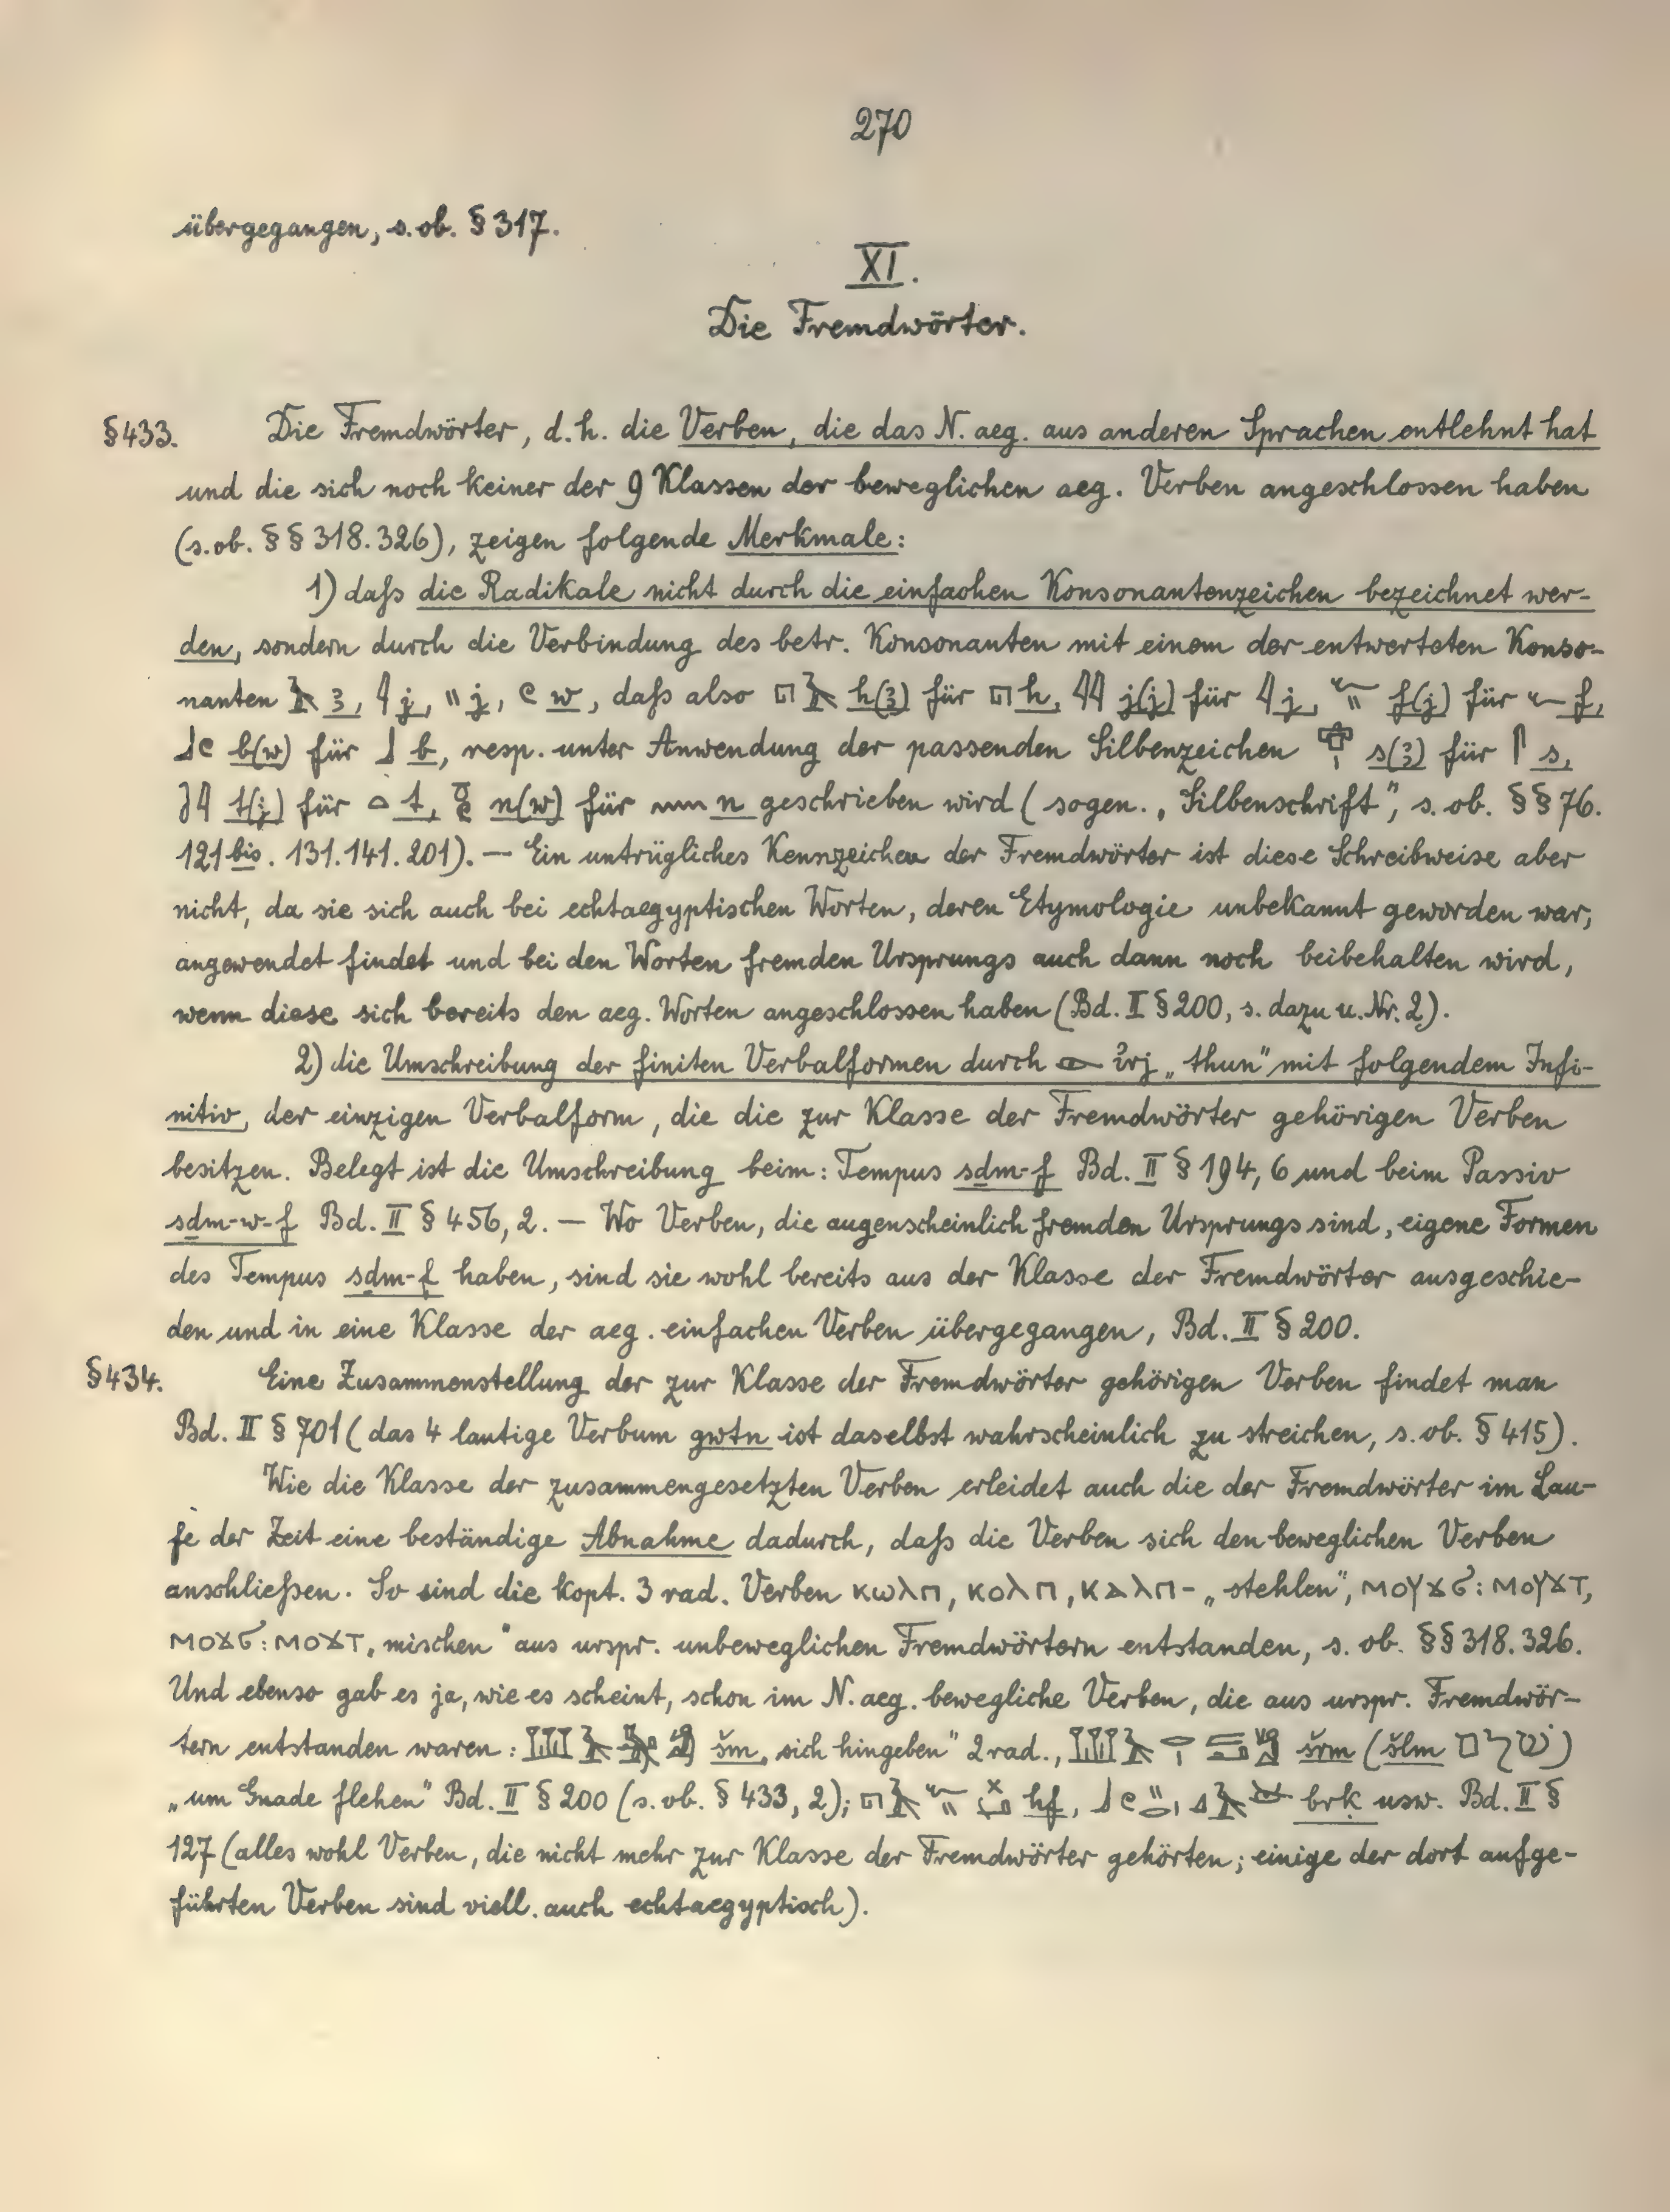 270
übergegangen, s. ob. § 317.
XI.
Die Fremdwörter.
§ 433. Die Fremdwörter, d. h. die Verben, die das N. aeg. aus anderen Sprachen entlehnt hat
und die sich noch keiner der 9 Klassen der beweglichen aeg. Verben angeschlossen haben
(s. ob. §§ 318. 326), zeigen folgende Merkmale:
1) daß die Radikale nicht durch die einfachen Konsonantenzeichen bezeichnet wer-
den, sondern durch die Verbindung des betr. Konsonanten mit einem der entwerteten Konso-
nanten 𓄿 ꜣ, 𓇋 j, 𓏭 j, 𓏲 w, daß also 𓉔𓄿 h(ꜣ) für 𓉔 h, 𓇋𓇋 j(j) für 𓇋 j, 𓆑𓏭 f(j) für 𓆑 f,
𓃀𓏲 b(w) für 𓃀 b, resp. unter Anwendung der passenden Silbenzeichen s(ꜣ) für 𓋴 s,
t(j) für 𓏏 t, 𓏌𓏲 n(w) für 𓈖 n geschrieben wird (sogen. „Silbenschrift", s. ob. §§ 76.
121 bis. 131. 141. 201). — Ein untrügliches Kennzeichen der Fremdwörter ist diese Schreibweise aber
nicht, da sie sich auch bei echtaegyptischen Worten, deren Etymologie unbekannt geworden war,
angewendet findet und bei den Worten fremden Ursprungs auch dann noch beibehalten wird,
wenn diese sich bereits den aeg. Worten angeschlossen haben (Bd. II § 200, s. dazu u. Nr. 2).
2) die Umschreibung der finiten Verbalformen durch 𓁹 ı͗rj „thun" mit folgendem Infi-
nitiv, der einzigen Verbalform, die die zur Klasse der Fremdwörter gehörigen Verben
besitzen. Belegt ist die Umschreibung beim: Tempus sḏm-f Bd. II § 194, 6 und beim Passiv
sḏm-w-f Bd. II § 456, 2. — Wo Verben, die augenscheinlich fremden Ursprungs sind, eigene Formen
des Tempus sḏm-f haben, sind sie wohl bereits aus der Klasse der Fremdwörter ausgeschie-
den und in eine Klasse der aeg. einfachen Verben übergegangen, Bd. II § 200.
§ 434. Eine Zusammenstellung der zur Klasse der Fremdwörter gehörigen Verben findet man
Bd. II § 701 (das 4 lautige Verbum gwtn ist daselbst wahrscheinlich zu streichen, s. ob. § 415).
Wie die Klasse der zusammengesetzten Verben erleidet auch die der Fremdwörter im Lau-
fe der Zeit eine beständige Abnahme dadurch, daß die Verben sich den beweglichen Verben
anschließen. So sind die kopt. 3 rad. Verben ⲕⲱⲗⲡ, ⲕⲟⲗⲡ, ⲕⲁⲗⲡ- „stehlen", ⲙⲟⲩϫϭ : ⲙⲟⲩϫⲧ,
ⲙⲟϫϭ : ⲙⲟϫⲧ „mischen" aus urspr. unbeweglichen Fremdwörtern entstanden, s. ob. §§ 318. 326.
Und ebenso gab es ja, wie es scheint, schon im N. aeg. bewegliche Verben, die aus urspr. Fremdwör-
tern entstanden waren: šm „sich hingeben" 2 rad., šrm (šlm שׁלם)
„um Gnade flehen" Bd. II § 200 (s. ob. § 433, 2); hf, brk usw. Bd. II §
127 (alles wohl Verben, die nicht mehr zur Klasse der Fremdwörter gehörten; einige der dort aufge-
führten Verben sind viell. auch echtaegyptisch).